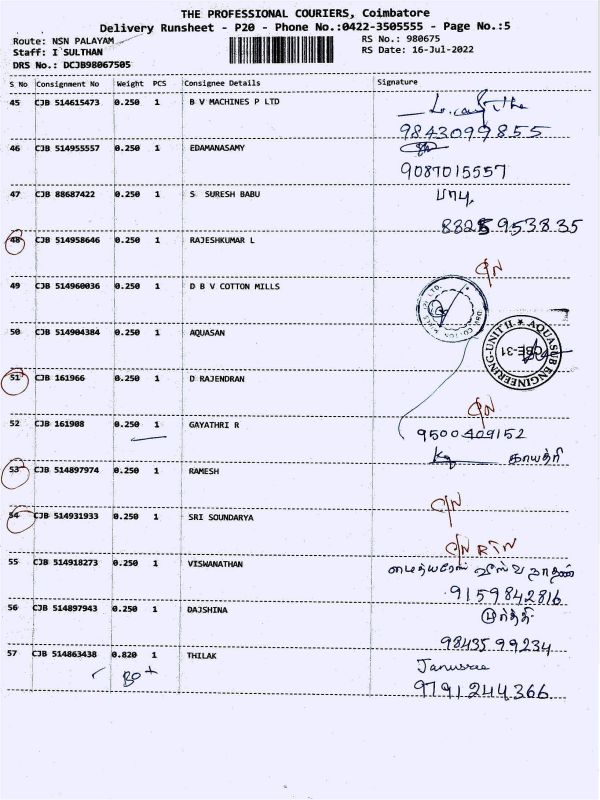 THE PROFESSIONAL COURIERS, Coimbatore
Delivery Runsheet - P20 - Phone No.:0422-3505555 - Page No.:5
Route: NSN PALAYAM RS No.: 980675
Staff: I SULTHAN RS Date: 16-Jul-2022
DRS No.: DCJB98067505
S No Consignment No Weight PCS Consignee Details Signature
45 CJB 514615473 0.250 1 B V MACHINES P LTD
9843099855
46 CJB 514955557 0.250 1 EDAMANASAMY
9087015557
47 CJB 88687422 0.250 1 S SURESH BABU பாபு
8825953835
48 CJB 514958646 0.250 1 RAJESHKUMAR L
C/N
49 CJB 514960036 0.250 1 D B V COTTON MILLS
50 CJB 514904384 0.250 1 AQUASAN
AQUASUB ENGINEERING-UNIT II
CBE-31
51 CJB 161966 0.250 1 D RAJENDRAN
C/N
52 CJB 161908 0.250 1 GAYATHRI R 9500409152
காயத்ரி
53 CJB 514897974 0.250 1 RAMESH
C/N
54 CJB 514931933 0.250 1 SRI SOUNDARYA
C/N RTN
55 CJB 514918273 0.250 1 VISWANATHAN
9159842816
56 CJB 514897943 0.250 1 DAJSHINA
9843599234
57 CJB 514863438 0.820 1 THILAK Janusree
80+ 9791244366